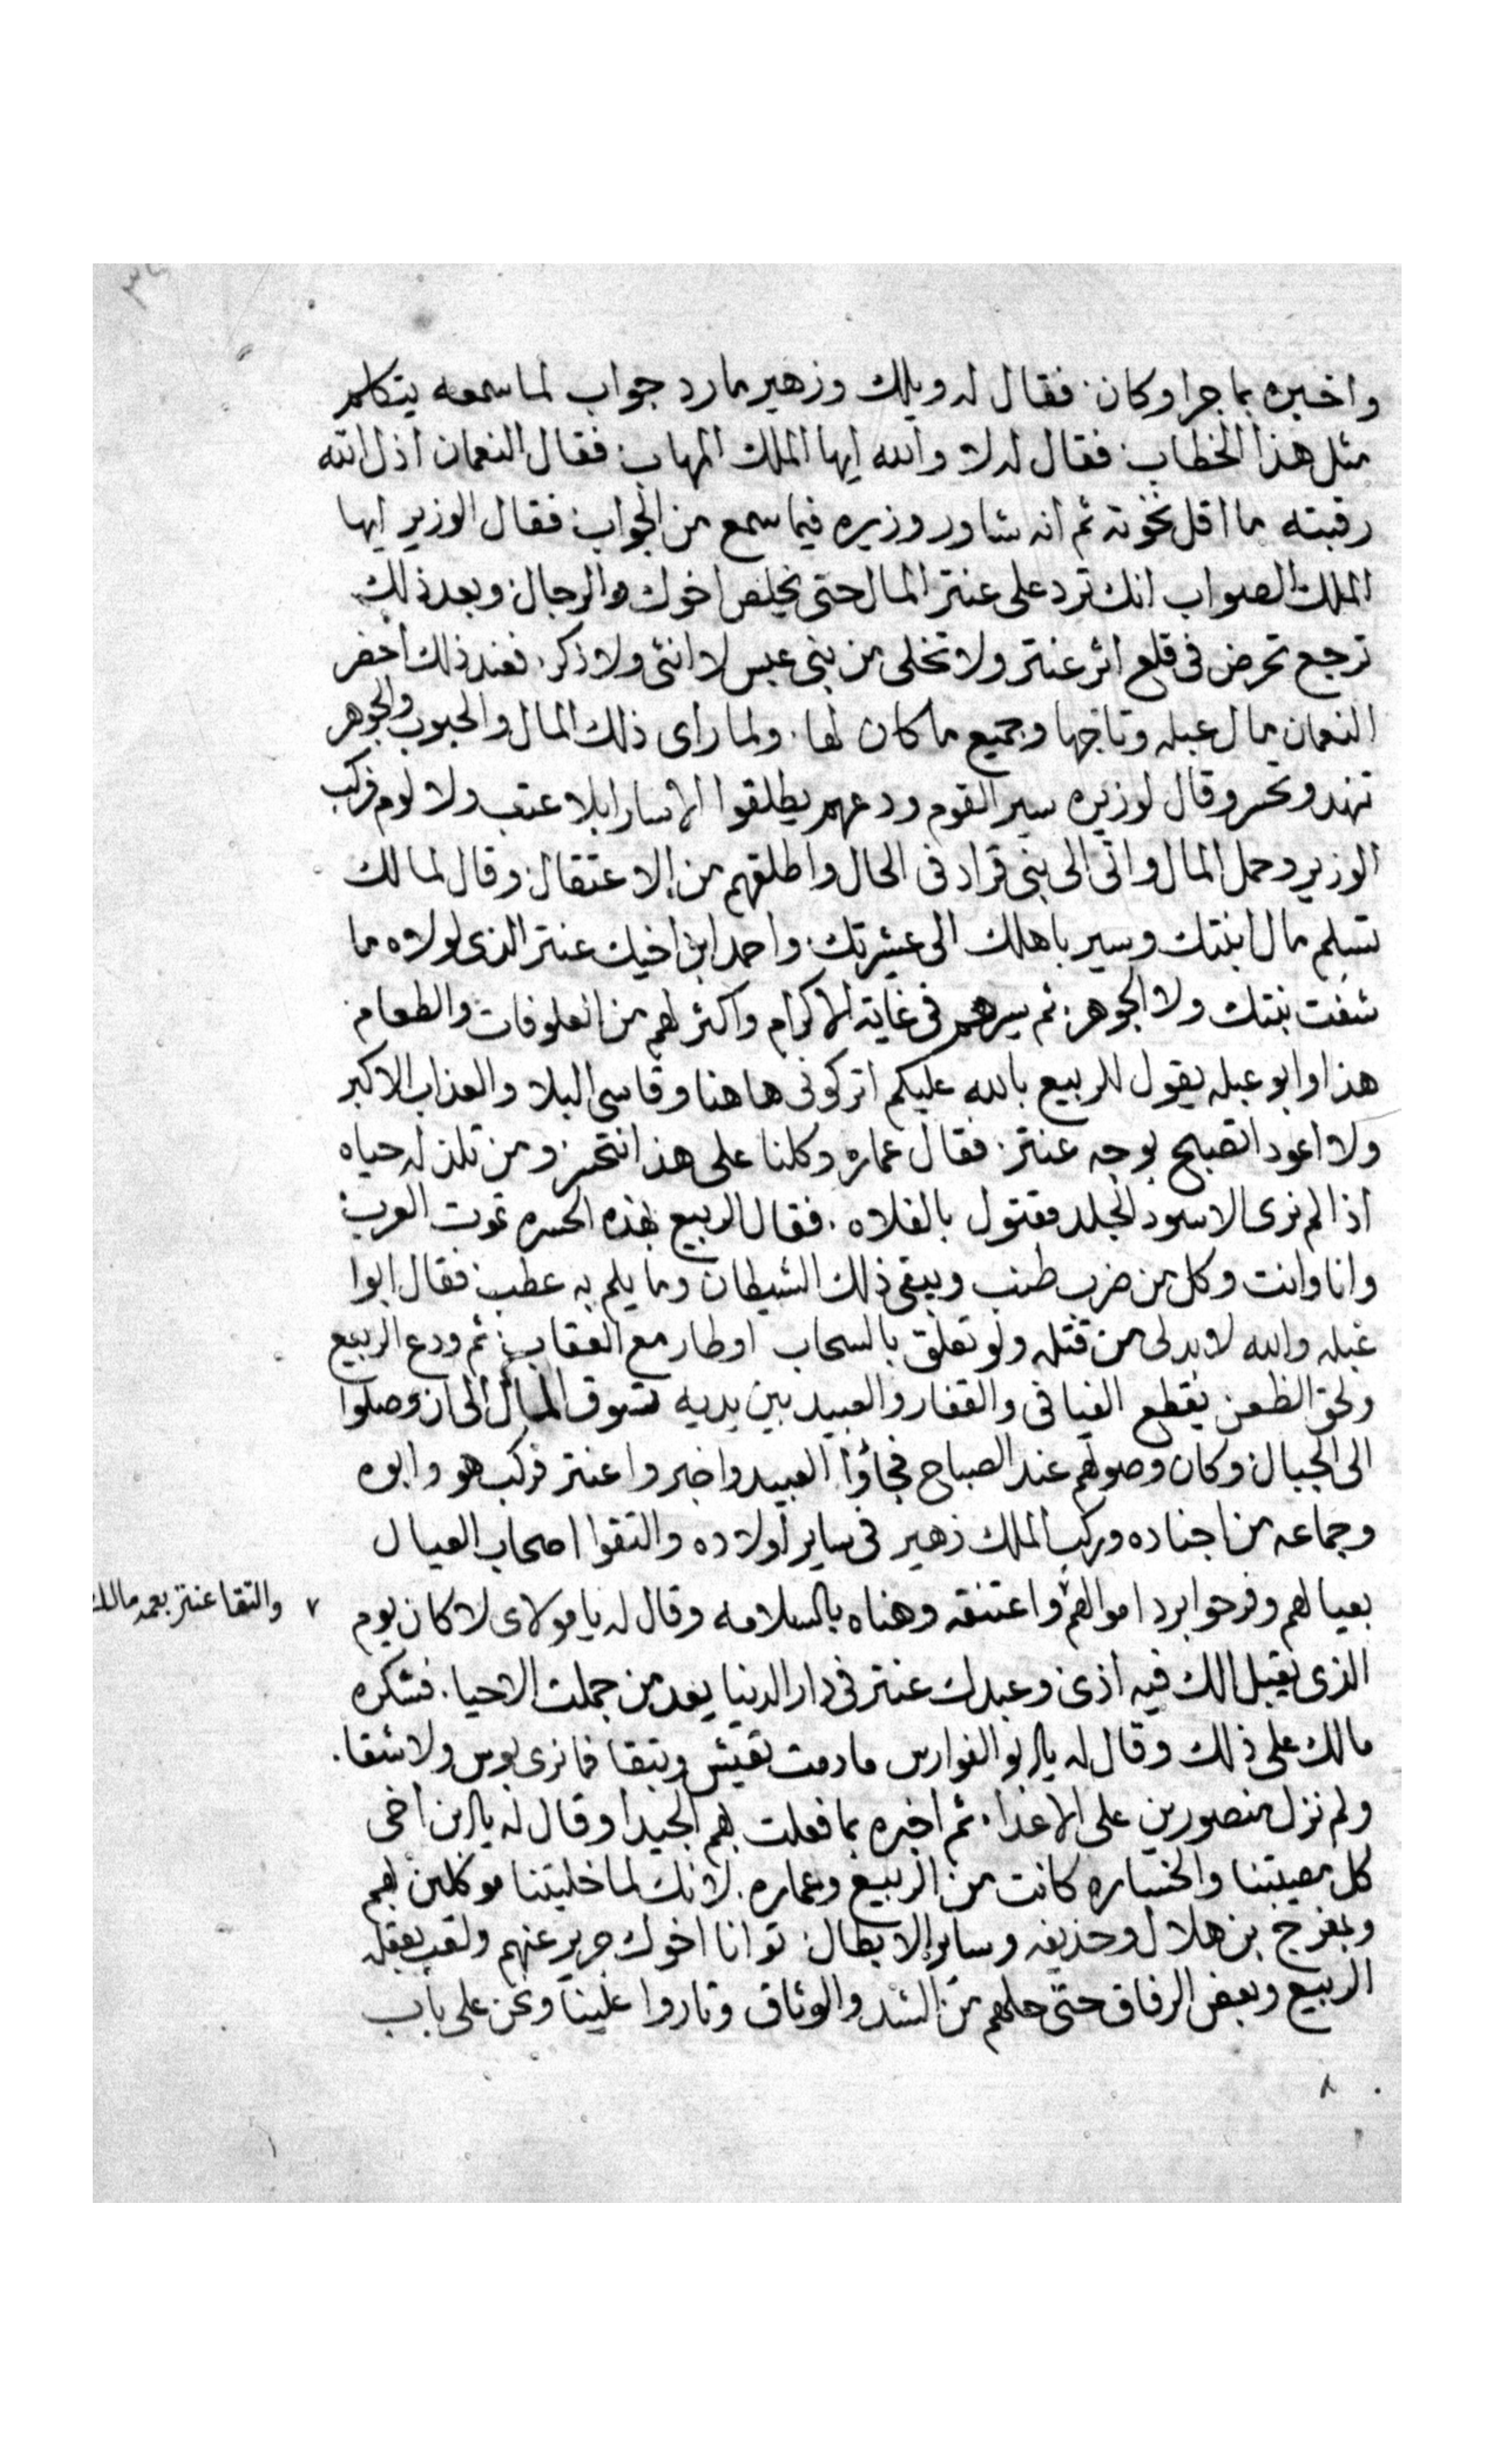 واخبره بما جرا وكان. فقال له ويلك وزهير ما رد جواب لما سمعه يتكلم
مثل هذا الخطاب. فقال له لا والله ايها الملك المهاب. فقال النعمان اذل الله
رقبته ما اقل نخوته ثم انه شاور وزيره فيما سمع من الجواب. فقال الوزير ايها
الملك الصواب انك ترد على عنتر المال حتى يخلص اخوك والرجال وبعد ذلك
ترجع تحرض فى قلع اثر عنتر ولا تخلى من بنى عبس لا انثى ولا ذكر. فعند ذلك احضر
النعمان مال عبله وتاجها وجميع ما كان لها. ولما راى ذلك المال والحبوب والجوهر
تنهد وتحسر وقال لوزيره سير القوم ودعهم يطلقوا الاسارا بلا عتب ولا لوم فركب
الوزير وحمل المال واتى الى بنى قراد فى الحال واطلقهم من الاعتقال وقال لمالك
تسلم مال ابنتك وسير باهلك الى عشيرتك. واحمد ابن اخيك عنتر الذى لولاه ما
شفت بنتك ولا الجوهر. ثم سيرهم فى غاية الاكرام واكثر لهم من العلوفات والطعام.
هذا وابو عبله يقول للربيع بالله عليكم اتركونى هاهنا وقاسى البلا والعذاب الاكبر
ولا اعود اتصبح بوجه عنتر. فقال عماره وكلنا على هذا نتحسر ومن تلذ له حياه
اذا لم نرى الاسود الجلد مقتول بالفلاه. فقال الربيع بهذه الحسره تموت العرب
وانا وانت وكل من ضرب طنب ويبقى ذلك الشيطان وما يلم به عطب. فقال ابوا
عبله والله لا بد لى من قتله ولو تعلق بالسحاب او طار مع العقاب. ثم ودع الربيع
ولحق الظعن يقطع الفيافى والقفار والعبيد بين يديه تسوق المال الى ان وصلوا
الى الجبال وكان وصولهم عند الصباح فجاؤا العبيد واخبروا عنتر فركب هو وابوه
وجماعه من اجناده وركب الملك زهير فى ساير اولاده والتقوا اصحاب العيال
بعيالهم وفرحوا برد اموالهم ٧ واعتنقه وهناه بالسلامه وقال له يا مولاى لا كان يوم
٧ والتقا عنتر بعمه مالك
الذى يقبل لك فيه اذى وعبدك عنتر فى دار الدنيا يعد من جملت الاحيا. فشكره
مالك على ذلك وقال له يا ابو الفوارس ما دمت تعيش وتبقا فما نرى بوس ولا شقا.
ولم نزل منصورين على الاعدا. ثم اخبره بما فعلت بهم الجيدا وقال له يا ابن اخى
كل مصيبتنا والخساره كانت من الربيع وعماره. لانك لما خليتنا موكلين بهم
وبمفرج بن هلال وحذيفه وساير الابطال. توانا اخوك جرير عنهم ولعب بعقله
الربيع وبعض الرفاق حتى حلهم من الشد والوثاق وثاروا علينا ونحن على باب